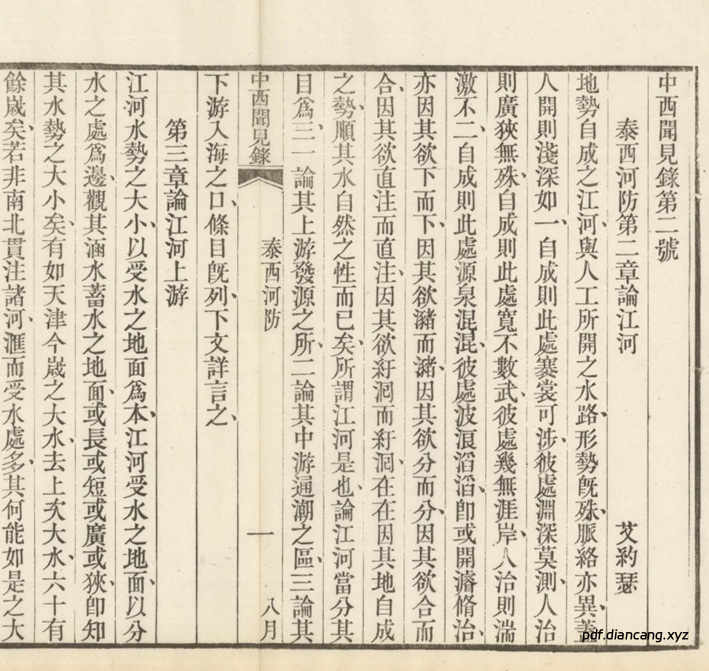 中西聞見錄第二號
泰西河防第二章論江河　艾約瑟
地勢自成之江河、與人工所開之水路、形勢旣殊、脈絡亦異、蓋
人開則淺深如一、自成則此處褰裳可涉、彼處淵深莫測、人治
則廣狹無殊、自成則此處寬不數武、彼處幾無涯岸、人治則湍
激不二、自成則此處源泉混混、彼處波浪滔滔、卽或開濬脩治、
亦因其欲下而下、因其欲瀦而瀦、因其欲分而分、因其欲合而
合、因其欲直注而直注、因其欲紆洄而紆洄、在在因其地自成
之勢、順其水自然之性而已矣、所謂江河是也、論江河當分其
目爲三、一論其上游發源之所、二論其中游通潮之區、三論其
中西聞見錄　泰西河防　一　八月
下游入海之口、條目旣列、下文詳言之、
第三章論江河上游
江河水勢之大小、以受水之地面爲本、江河受水之地面、以分
水之處爲邊、觀其涵水蓄水之地面、或長或短、或廣或狹、卽知
其水勢之大小矣、有如天津今歲之大水、去上次大水、六十有
餘歲矣、若非南北貫注諸河滙、而受水處多、其何能如是之大
pdf.diancang.xyz